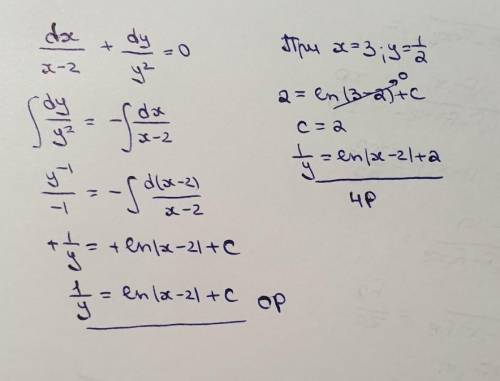 dx/(x-2) + dy/y² = 0
∫ dy/y² = -∫ dx/(x-2)
y⁻¹/-1 = -∫ d(x-2)/(x-2)
+1/y = +ln|x-2| + C
1/y = ln|x-2| + C ОР
При x=3; y=1/2
2 = ln(3-2) + C
0
C = 2
1/y = ln|x-2| + 2
ЧР